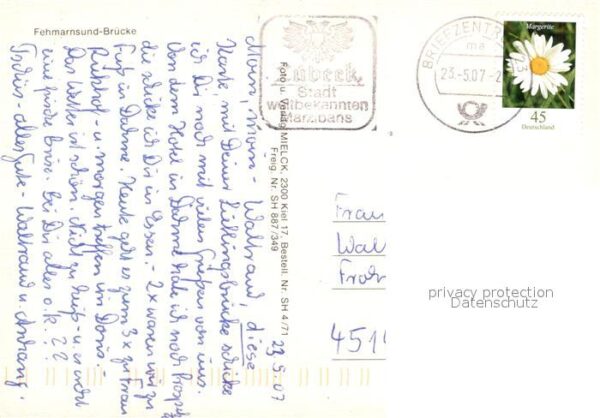 Fehmarnsund-Brücke
Lübeck,
Stadt
weltbekannten
Marzipans
BRIEFZENTRUM 23
ma
23.-5.07-2
Margerite
45
Deutschland
23.5.07
Moin, moin - Waltraud, diese
Karte mit Deiner Lieblingsbrücke schicke
ich Dir, noch mit vielen Grüßen von uns.
Von dem Hotel in Dahme habe ich noch
die schicke ich Dir in Essen. - 2x waren wir zu
Fuß in Dahme. Heute geht es zum 3x zu Frau
u. morgen treffen im Dorf -
Das Wetter ist schön. Nicht zu heiß - u. es weht
eine frische Brise. Bei Dir alles o.k. ??
Tschüs - alles Gute - Waltraud u. Anhang.
Foto u. Verlag MIELCK, 2300 Kiel 17, Bestell. Nr. SH 4/71
Freig. Nr. SH 887/349
Frau
Wal
451
privacy protection
Datenschutz